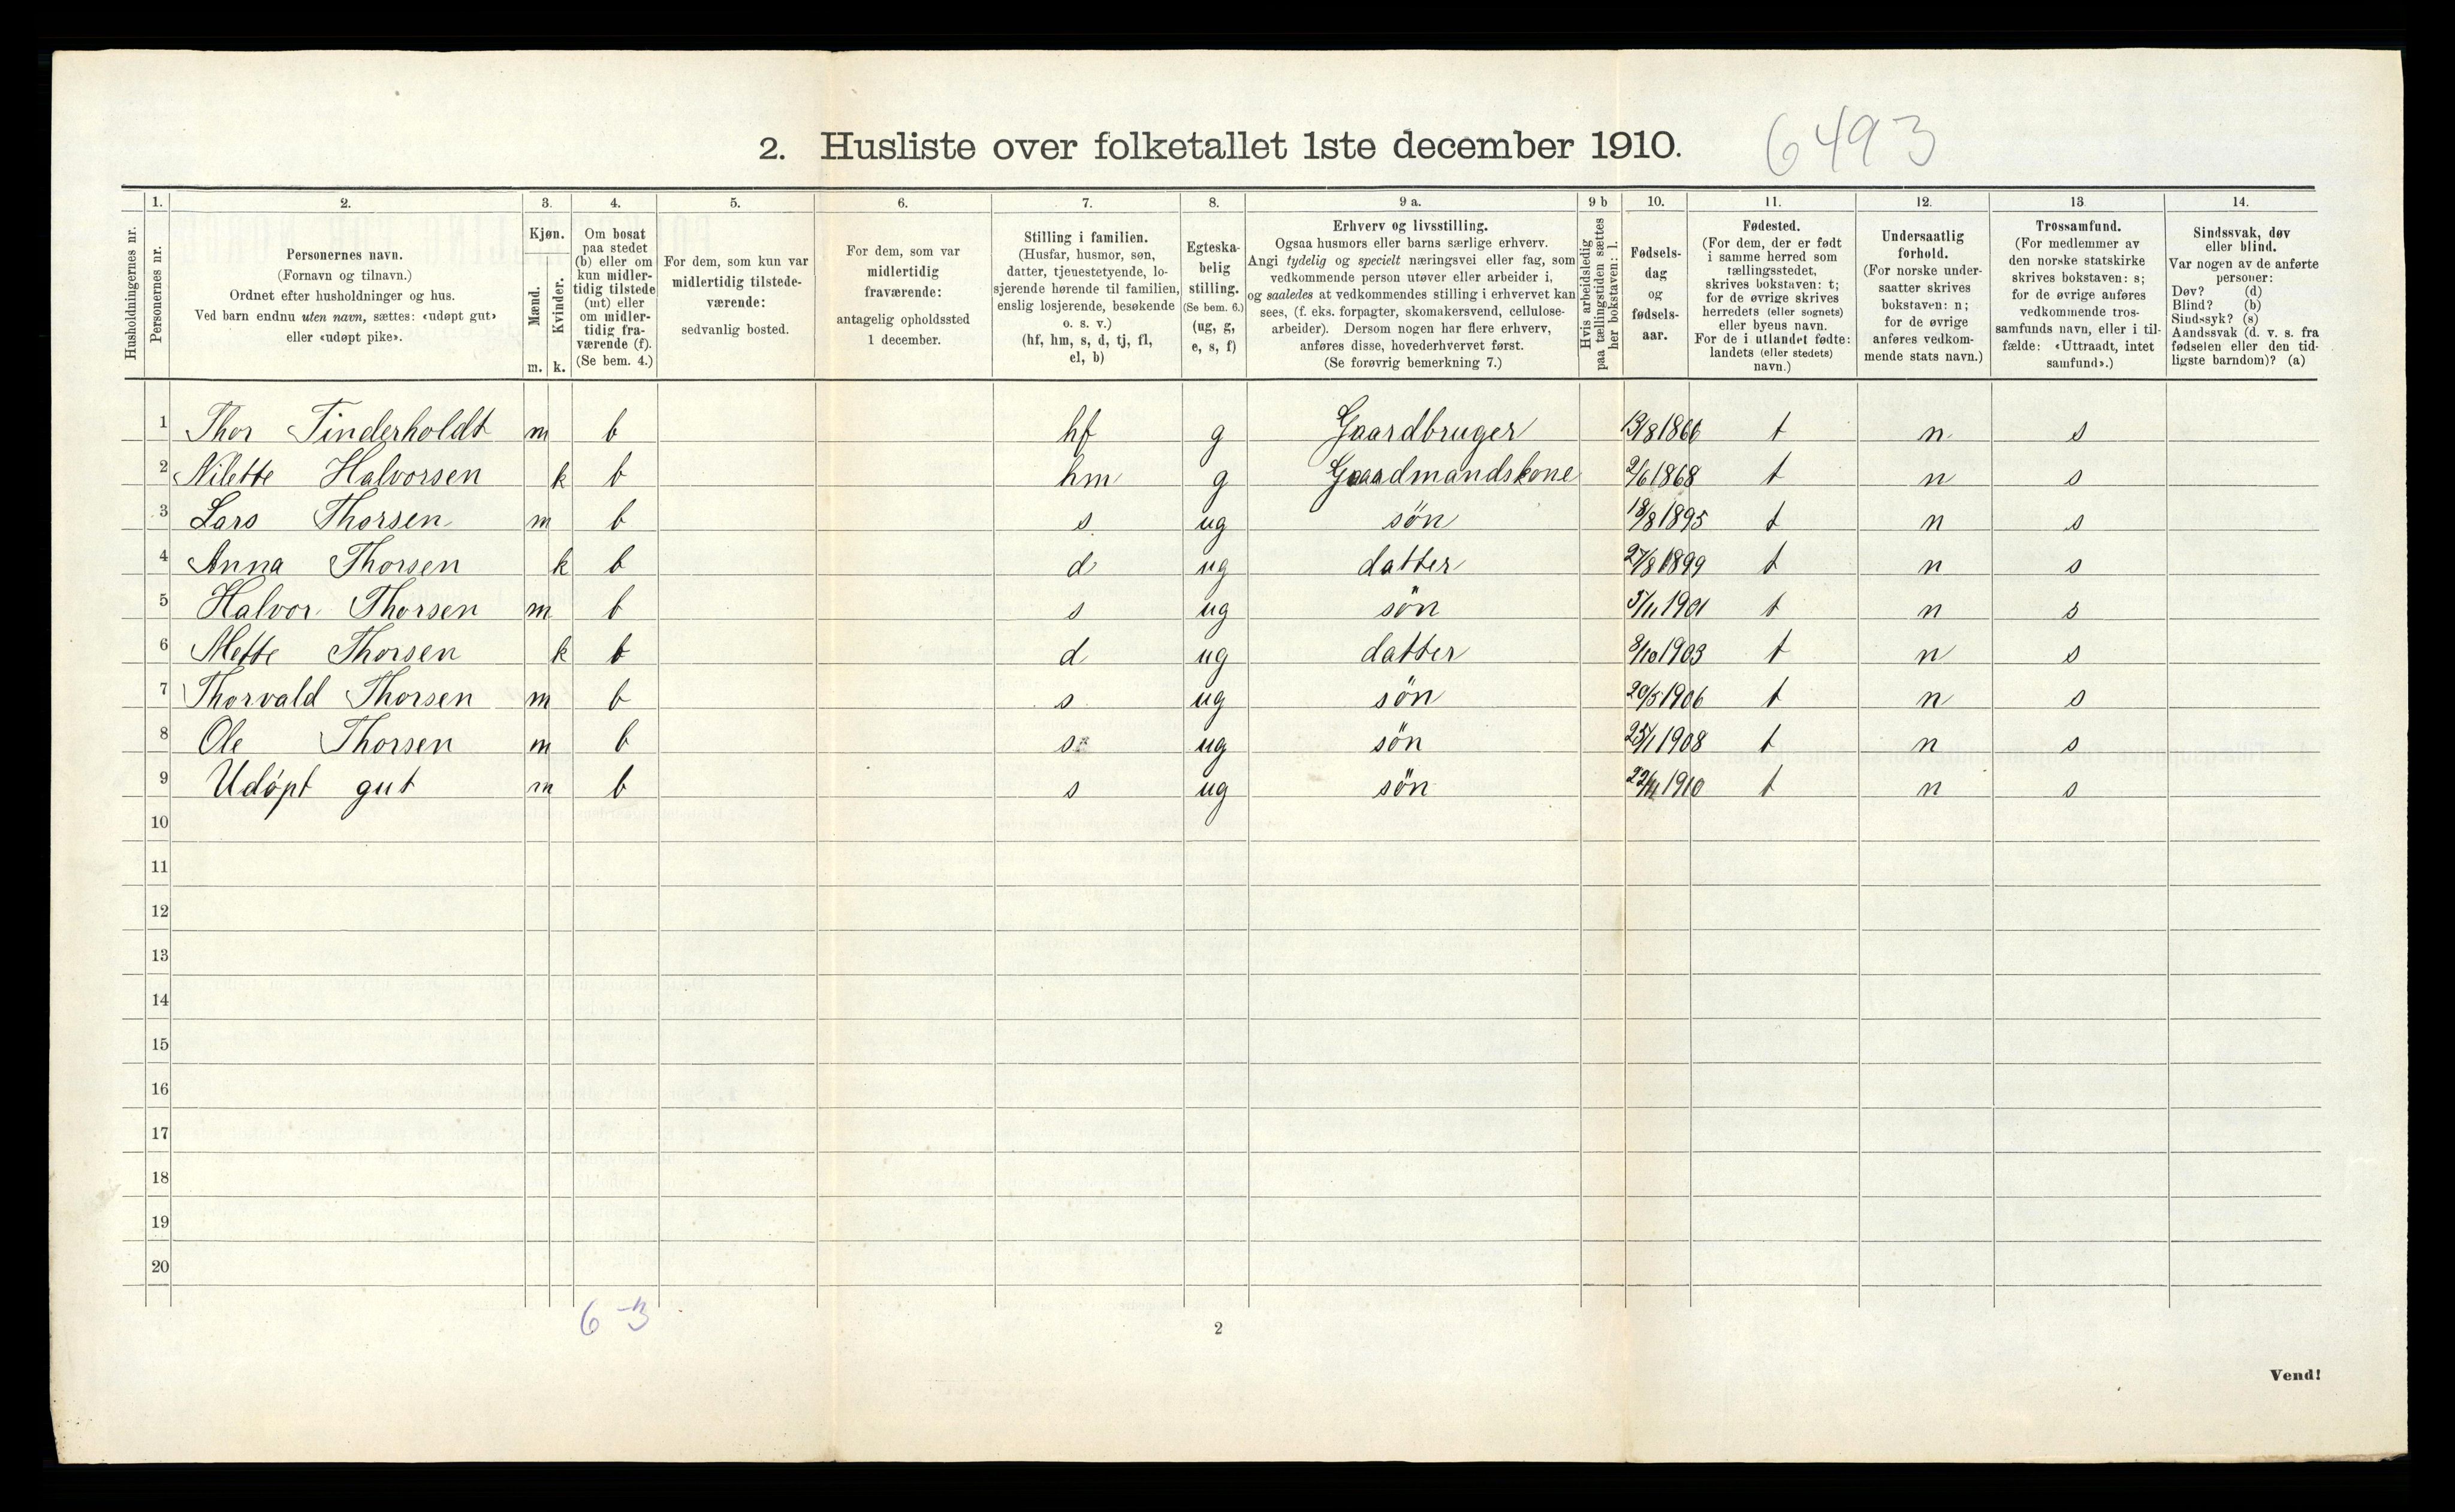 2. Husliste over folketallet 1ste december 1910. 6493
1. 2. 3. 4. 5. 6. 7. 8. 9 a. 9 b 10. 11. 12. 13 14.
Husholdningernes nr.
Personernes nr.
Personernes navn.
(Fornavn og tilnavn.)
Ordnet efter husholdninger og hus.
Ved barn endnu uten navn, sættes: «udøpt gut»
eller «udøpt pike».
Kjøn.
Mænd.
Kvinder.
m. k.
Om bosat
paa stedet
(b) eller om
kun midler-
tidig tilstede
(mt) eller
om midler-
tidig fra-
værende (f).
(Se bem. 4.)
For dem, som kun var
midlertidig tilstede-
værende:
sedvanlig bosted.
For dem, som var
midlertidig
fraværende:
antagelig opholdssted
1 december.
Stilling i familien.
(Husfar, husmor, søn,
datter, tjenestetyende, lo-
sjerende hørende til familien,
enslig losjerende, besøkende
o. s. v.)
(hf, hm, s, d, tj, fl,
el, b)
Egteska-
belig
stilling.
(Se bem. 6.)
(ug, g,
e, s, f)
Erhverv og livsstilling.
Ogsaa husmors eller barns særlige erhverv.
Angi tydelig og specielt næringsvei eller fag, som
vedkommende person utøver eller arbeider i,
og saaledes at vedkommendes stilling i erhvervet kan
sees, (f. eks. forpagter, skomakersvend, cellulose-
arbeider). Dersom nogen har flere erhverv,
anføres disse, hovederhvervet først.
(Se forøvrig bemerkning 7.)
Hvis arbeidsledig
paa tællingstiden sættes
her bokstaven: l.
Fødsels-
dag
og
fødsels-
aar.
Fødested.
(For dem, der er født
i samme herred som
tællingsstedet,
skrives bokstaven: t;
for de øvrige skrives
herredets (eller sognets)
eller byens navn.
For de i utlandet fødte:
landets (eller stedets)
navn.)
Undersaatlig
forhold.
(For norske under-
saatter skrives
bokstaven: n;
for de øvrige
anføres vedkom-
mende stats navn.)
Trossamfund.
(For medlemmer av
den norske statskirke
skrives bokstaven: s;
for de øvrige anføres
vedkommende tros-
samfunds navn, eller i til-
fælde: «Uttraadt, intet
samfund».)
Sindssvak, døv
eller blind.
Var nogen av de anførte
personer:
Døv? (d)
Blind? (b)
Sindssyk? (s)
Aandssvak (d. v. s. fra
fødselen eller den tid-
ligste barndom)? (a)
1 Thor Tinderholdt m b hf g Gaardbruger 13/8 1866 t n s
2 Nilette Halvorsen k b hm g Gaardmandskone 2/6 1868 t n s
3 Lars Thorsen m b s ug søn 18/8 1895 t n s
4 Anna Thorsen k b d ug datter 27/8 1899 t n s
5 Halvor Thorsen m b s ug søn 5/11 1901 t n s
6 Mette Thorsen k b d ug datter 8/10 1903 t n s
7 Thorvald Thorsen m b s ug søn 20/5 1906 t n s
8 Ole Thorsen m b s ug søn 25/1 1908 t n s
9 Udøpt gut m b s ug søn 22/11 1910 t n s
10
11
12
13
14
15
16
17
18
19
20
6-3
2
Vend!